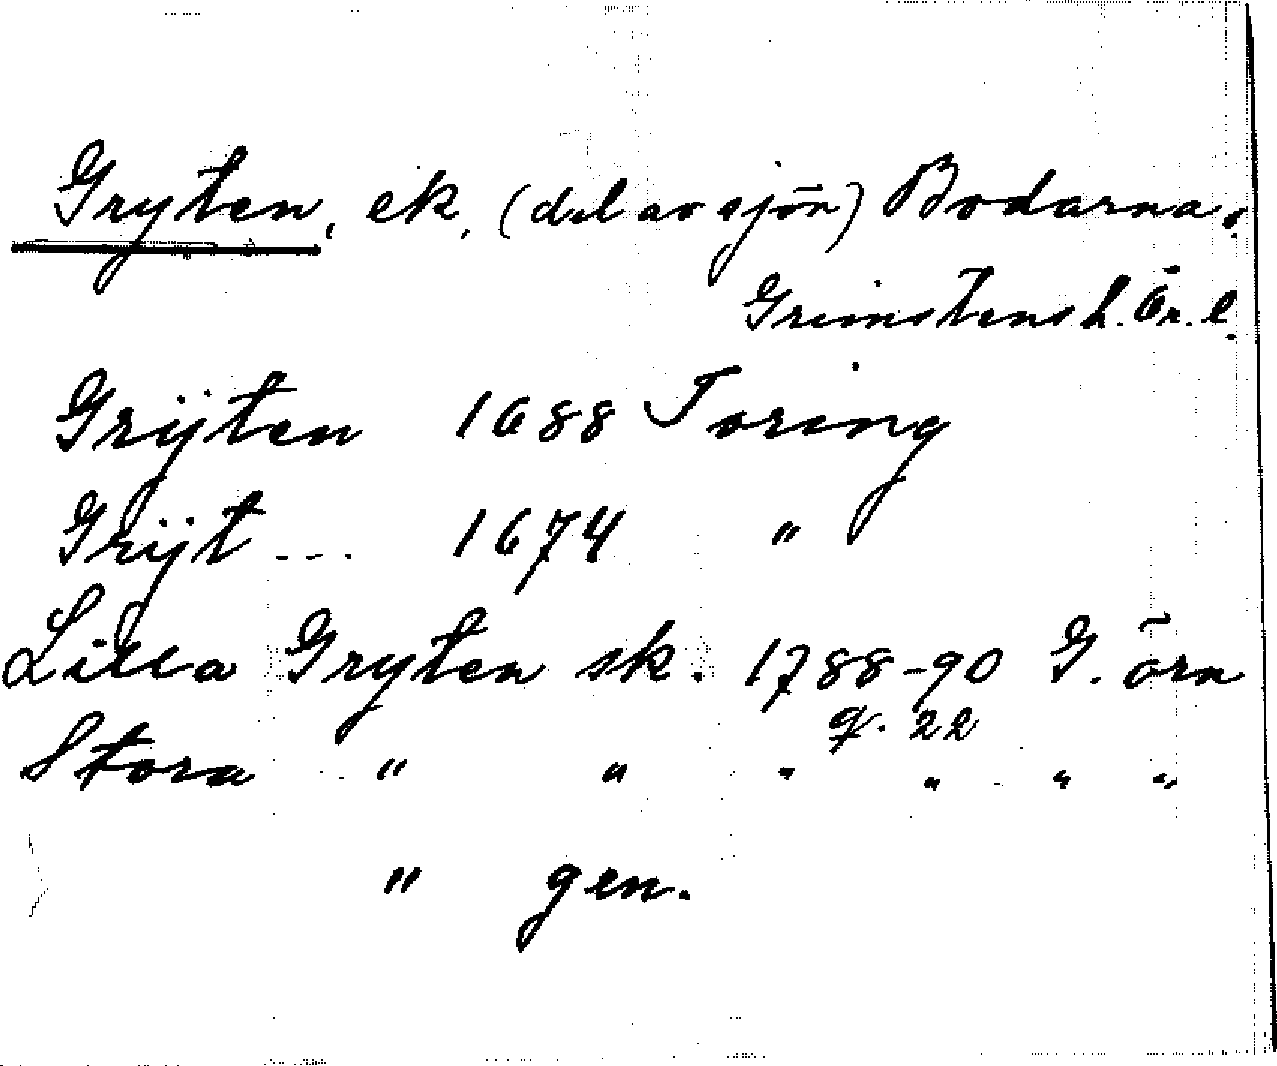 Gryten, ek. (del av sjön) Bodarna,
Grimstens h. Ör. l.
Grÿten 1688 Toring
Grÿt --- 1674 "
Lilla Gryten sk. 1788-90 G. örn
q. 22
Stora " " " " " "
" gen.